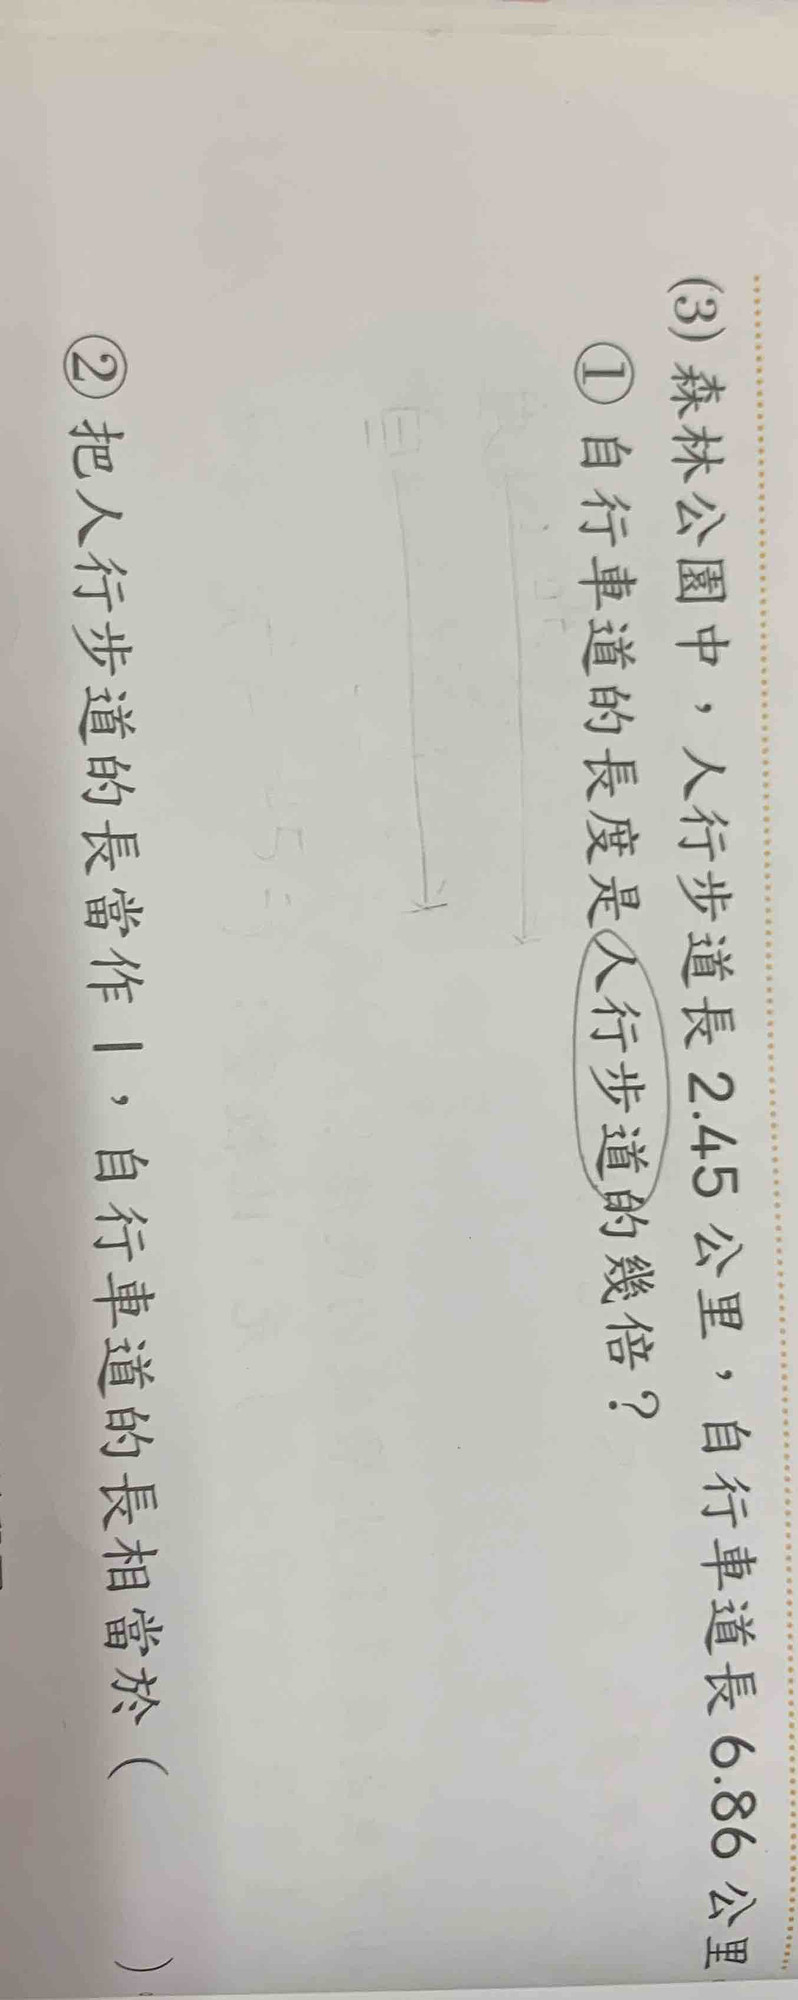 (3) 森林公園中，人行步道長 2.45 公里，自行車道長 6.86 公里
① 自行車道的長度是人行步道的幾倍？
② 把人行步道的長當作 1，自行車道的長相當於（　　）。